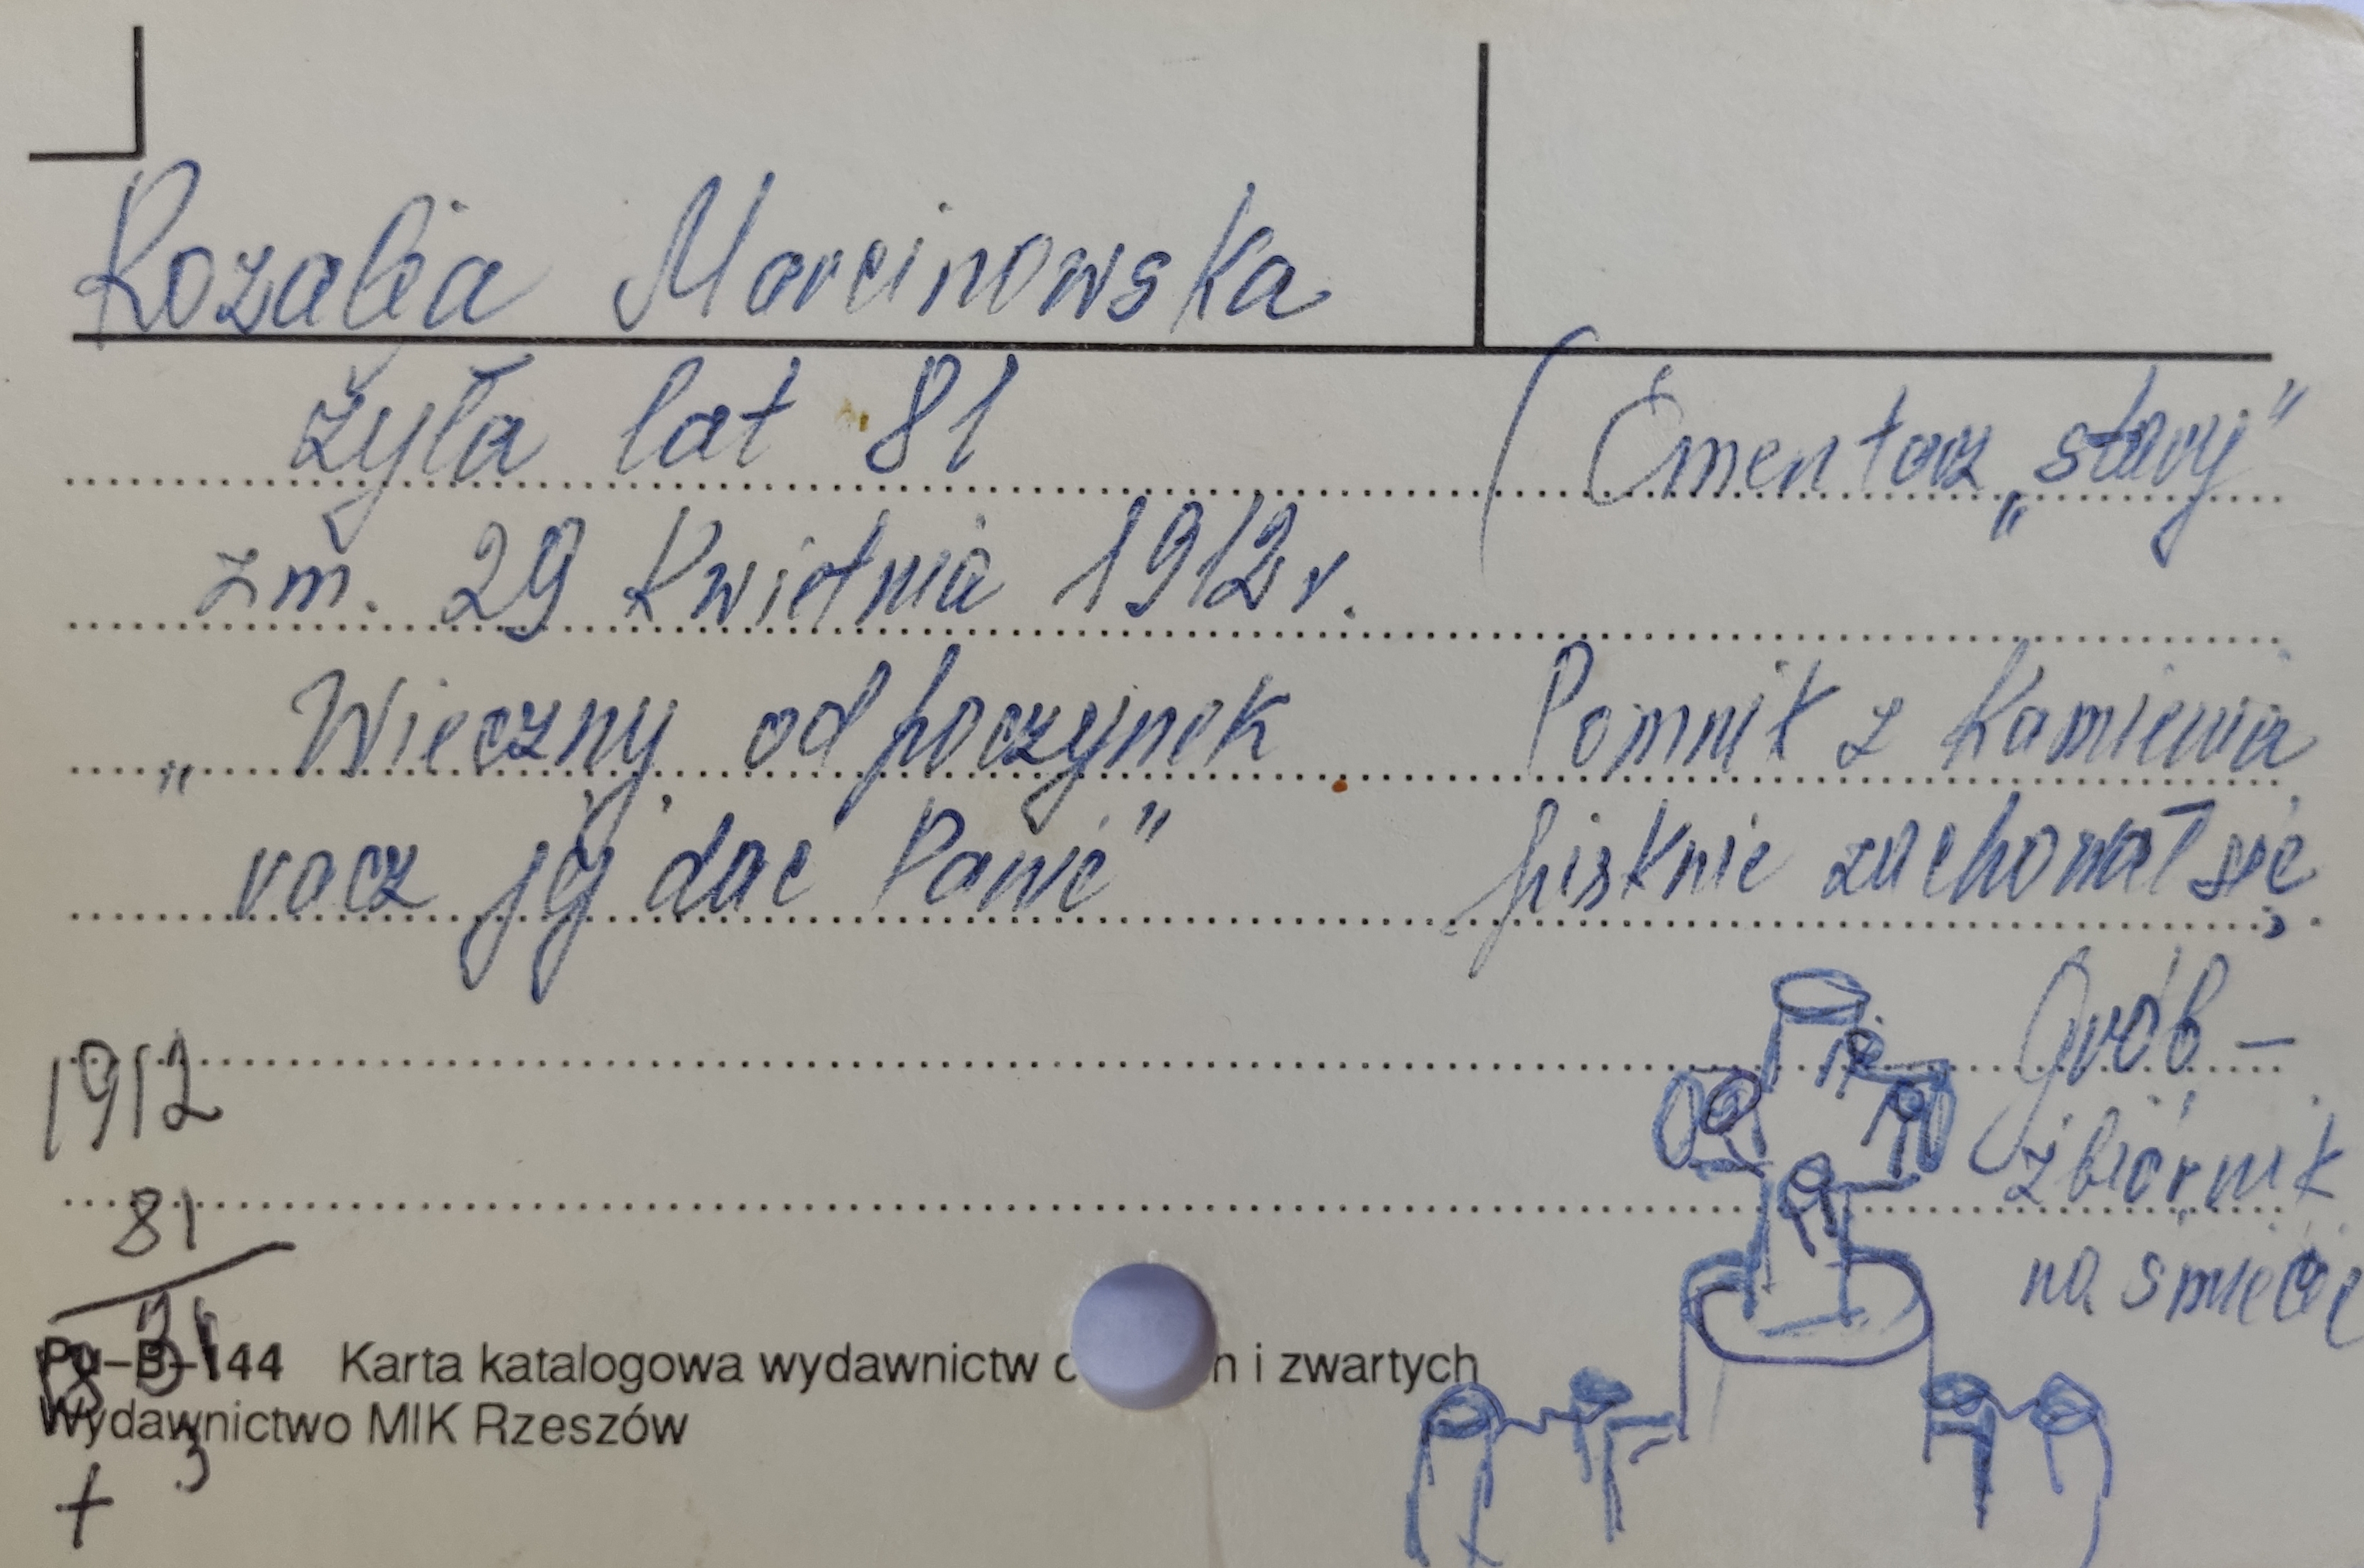 Rozalia Marcinowska
żyła lat 81
(Cmentarz „stary”
zm. 29 Kwietnia 1912 r.
„Wieczny odpoczynek
racz jej dać Panie”
Pomnik z Kamienia
pięknie zachował się.
Grób –
zbiórnik
na śmieci
1912
81
Pu–B–144 Karta katalogowa wydawnictw i zwartych
Wydawnictwo MIK Rzeszów